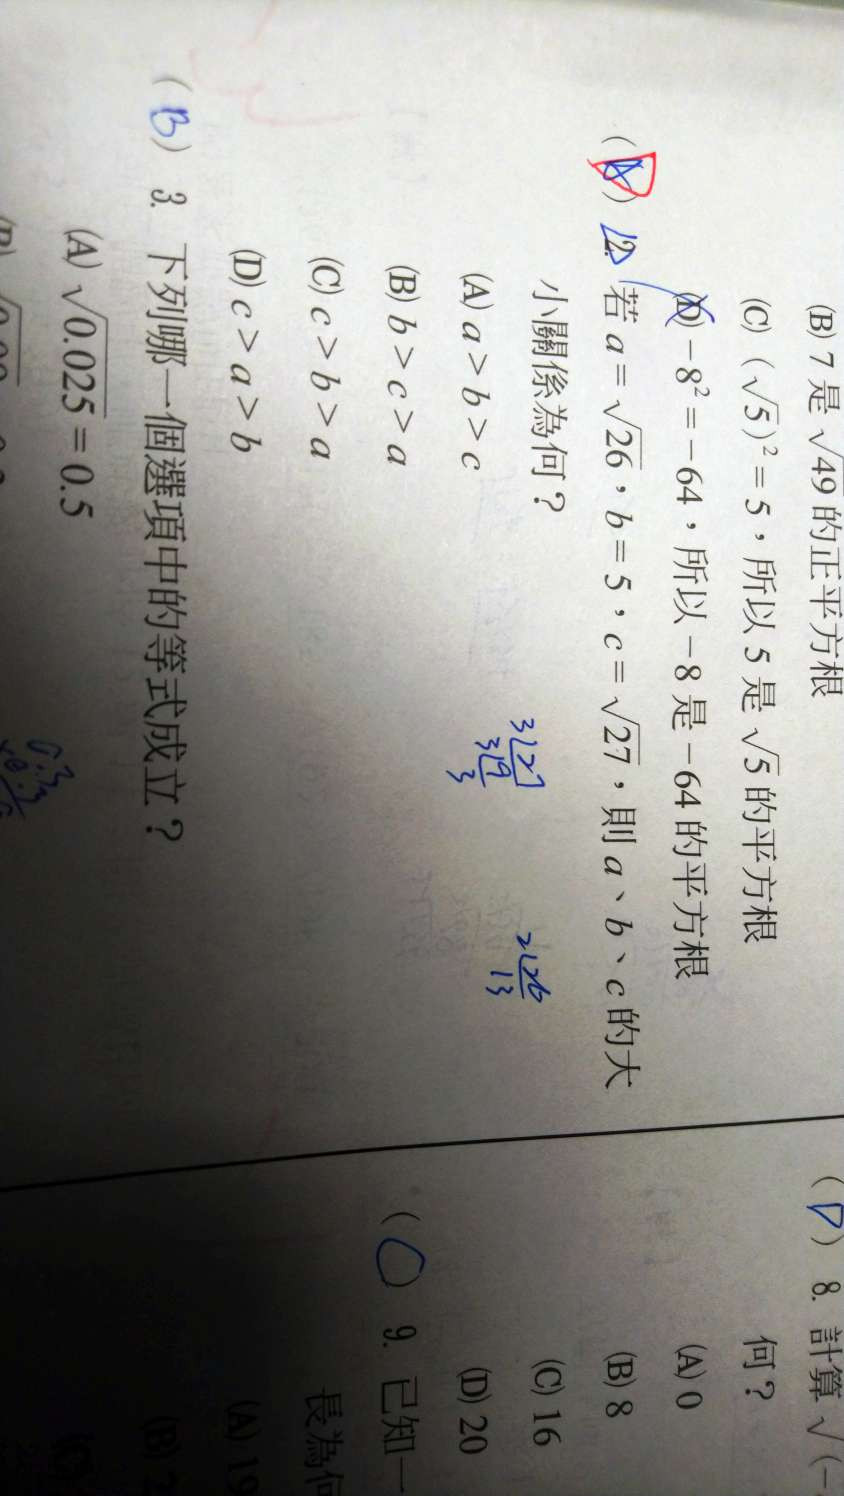 (B) 7 是 √49 的正平方根
(C) (√5)² = 5，所以 5 是 √5 的平方根
(D) −8² = −64，所以 −8 是 −64 的平方根
2. 若 a = √26，b = 5，c = √27，則 a、b、c 的大
小關係為何？
(A) a > b > c
(B) b > c > a
(C) c > b > a
(D) c > a > b
3 27
3 9
3
2 26
13
(B) 3. 下列哪一個選項中的等式成立？
(A) √0.025 = 0.5
(D) 8. 計算 √(−
何？
(A) 0
(B) 8
(C) 16
(D) 20
( ) 9. 已知一
長為何
(A) 19